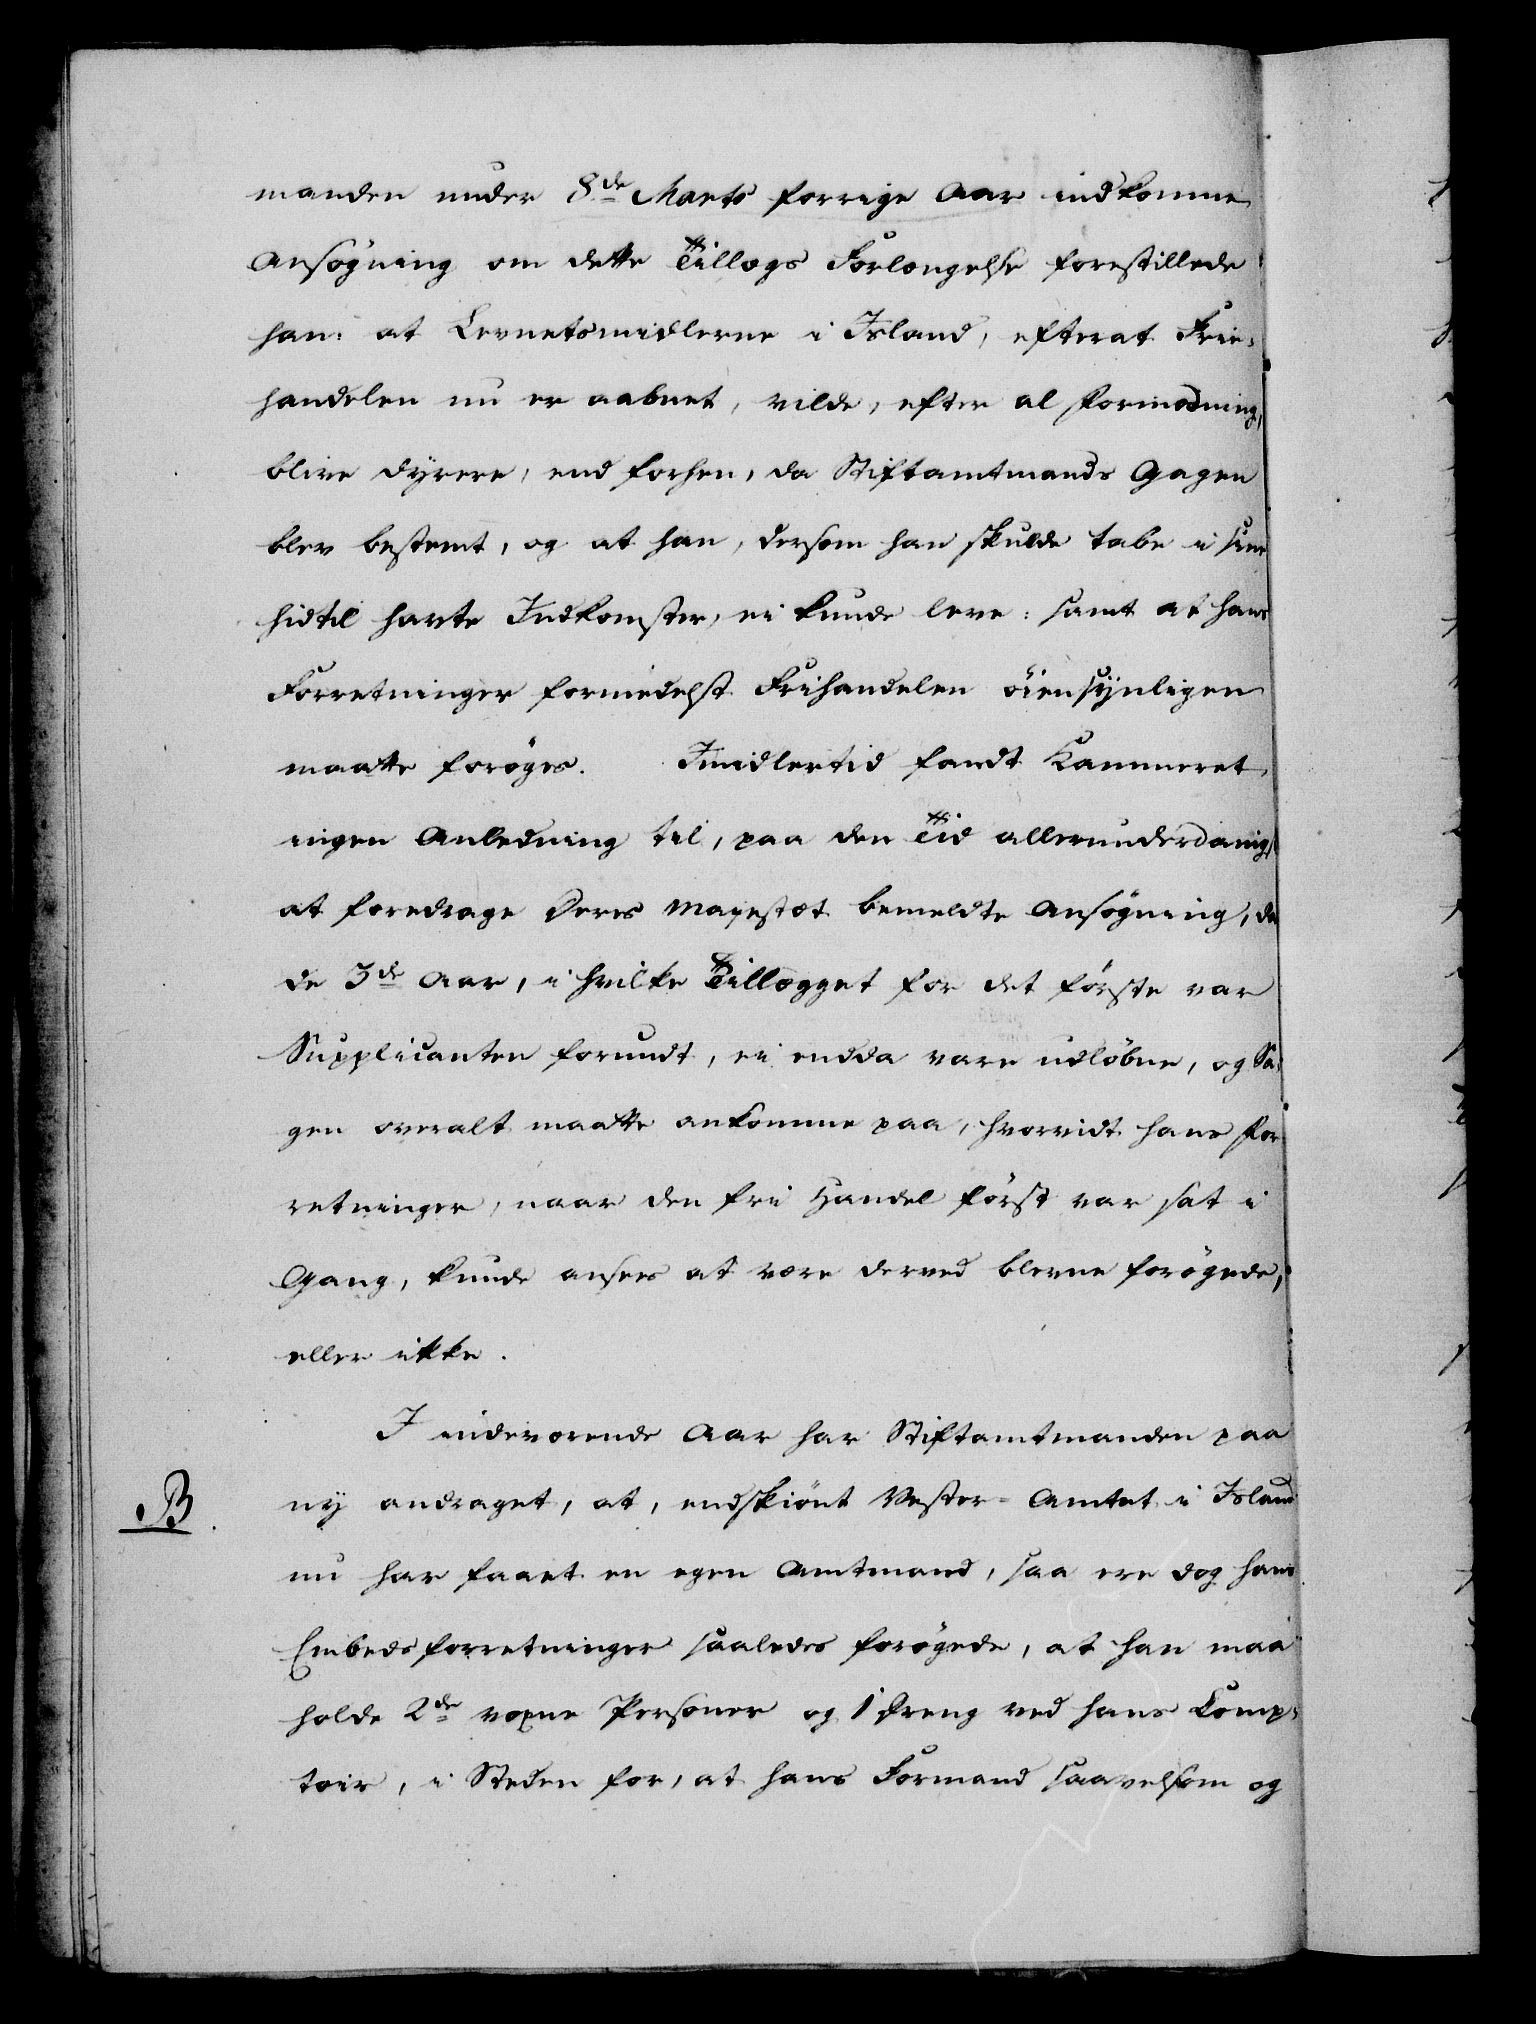 manden under 8de Marts forrige Aar indkomne
Ansøgning om dette Tillægs Forlængelse forestillede
han: at Levnetsmidlerne i Island, efterat Frie-
handelen nu er aabnet, vilde, efter al Formodning,
blive dyrere, end forhen, da Stiftamtmands Gagen
blev bestemt, og at han, dersom han skulde tabe i sine
hidtil havte Indkomster, ei kunde leve: samt at hans
Forretninger formedelst Frihandelen öiensÿnligen
maatte forøges. Imidlertid fandt Kammeret
ingen Anledning til, paa den Tid allerunderdanigst
at foredrage Deres Majestæt bemeldte Ansøgning, da
de 3de Aar, i hvilke Tillægget for det første var
Supplicanten forundt, ei endda vare udløbne, og Sa-
gen overalt maatte ankomme paa, hvorvidt hans For-
retninger, naar den fri Handel först var sat i
Gang, kunde ansees at være derved blevne forøgede,
eller ikke.
I indeværende Aar har Stiftamtmanden paa
B. nÿ andraget, at, endskiönt Vester-Amtet i Island
nu har faaet en egen Amtmand, saa ere dog hans
Embedsforretninger saaledes forøgede, at han maa
holde 2de voxne Personer og 1 Dreng ved hans Comp-
toir, i Steden for, at hans Formand saavelsom og